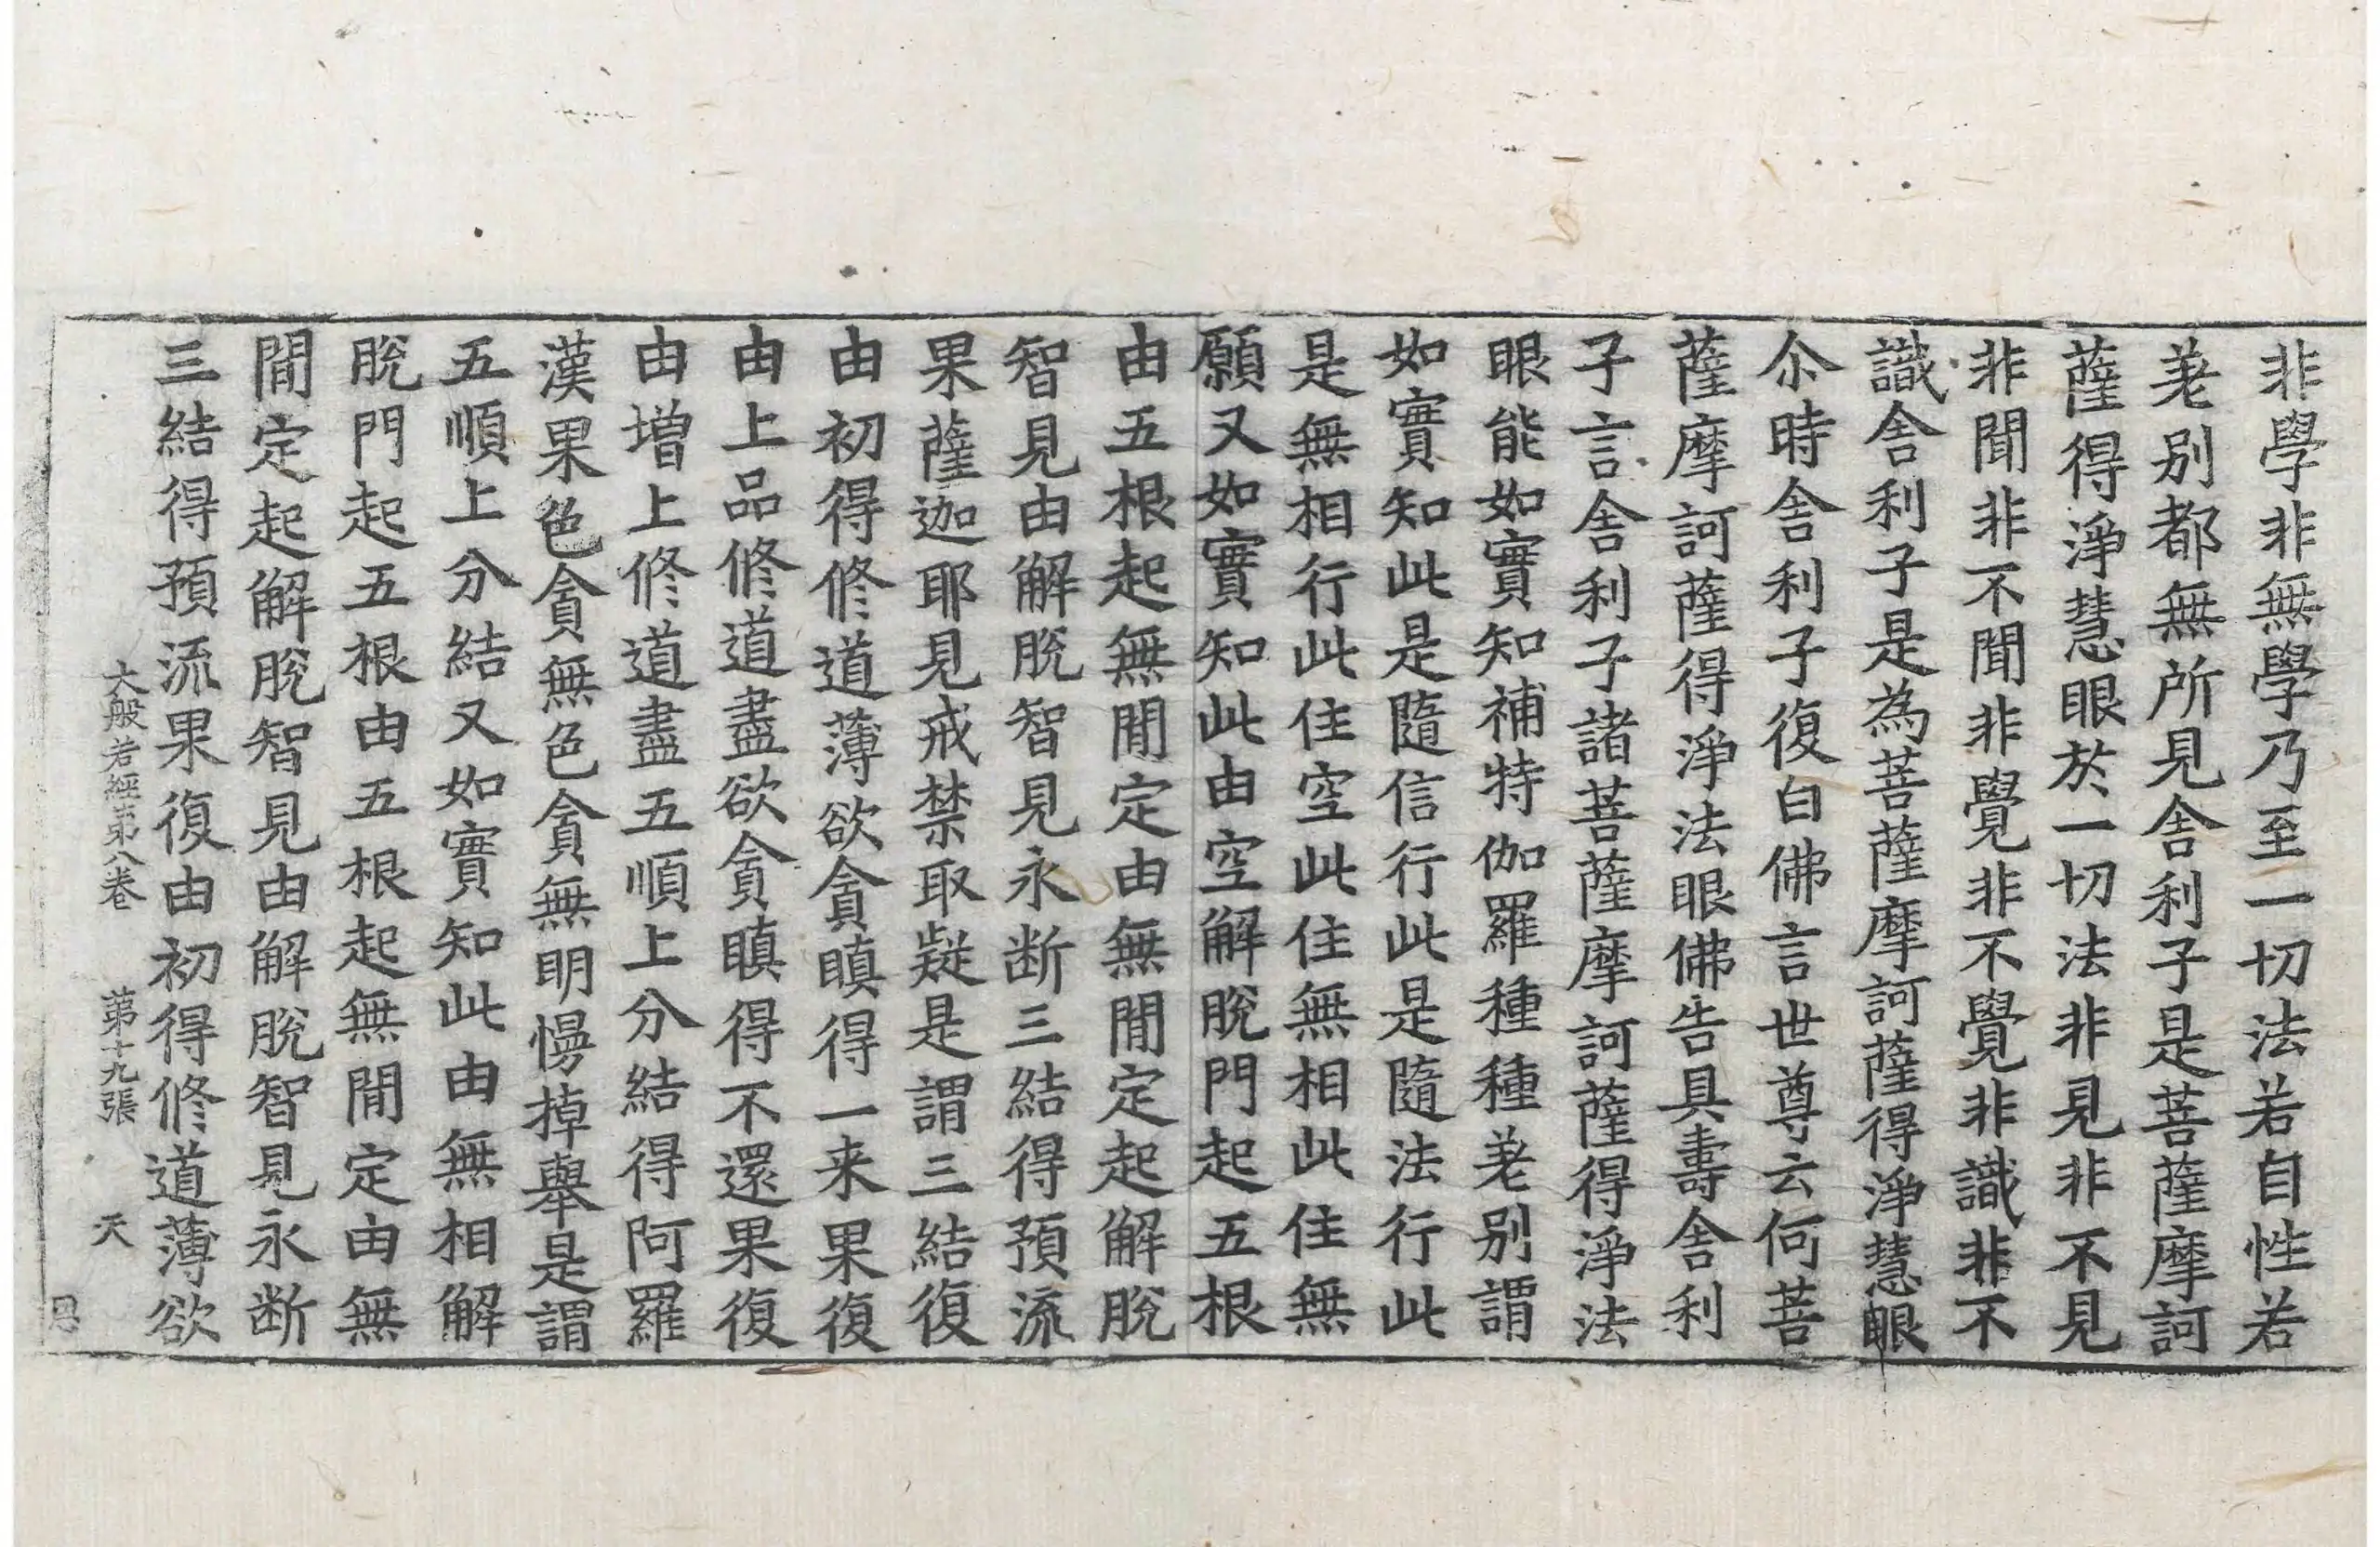 非學非無學乃至一切法若自性若
差別都無所見舍利子是菩薩摩訶
薩得淨慧眼於一切法非見非不見
非聞非不聞非覺非不覺非識非不
識舍利子是為菩薩摩訶薩得淨慧眼
尒時舍利子復白佛言世尊云何菩
薩摩訶薩得淨法眼佛告具壽舍利
子言舍利子諸菩薩摩訶薩得淨法
眼能如實知補特伽羅種種差別謂
如實知此是隨信行此是隨法行此
是無相行此住空此住無相此住無
願又如實知此由空解脫門起五根
由五根起無閒定由無閒定起解脫
智見由解脫智見永断三結得預流
果薩迦耶見戒禁取疑是謂三結復
由初得修道薄欲貪瞋得一来果復
由上品修道盡欲貪瞋得不還果復
由增上修道盡五順上分結得阿羅
漢果色貪無色貪無明慢掉舉是謂
五順上分結又如實知此由無相解
脫門起五根由五根起無閒定由無
閒定起解脫智見由解脫智見永断
三結得預流果復由初得修道薄欲
大般若經第八卷 第十九張 天